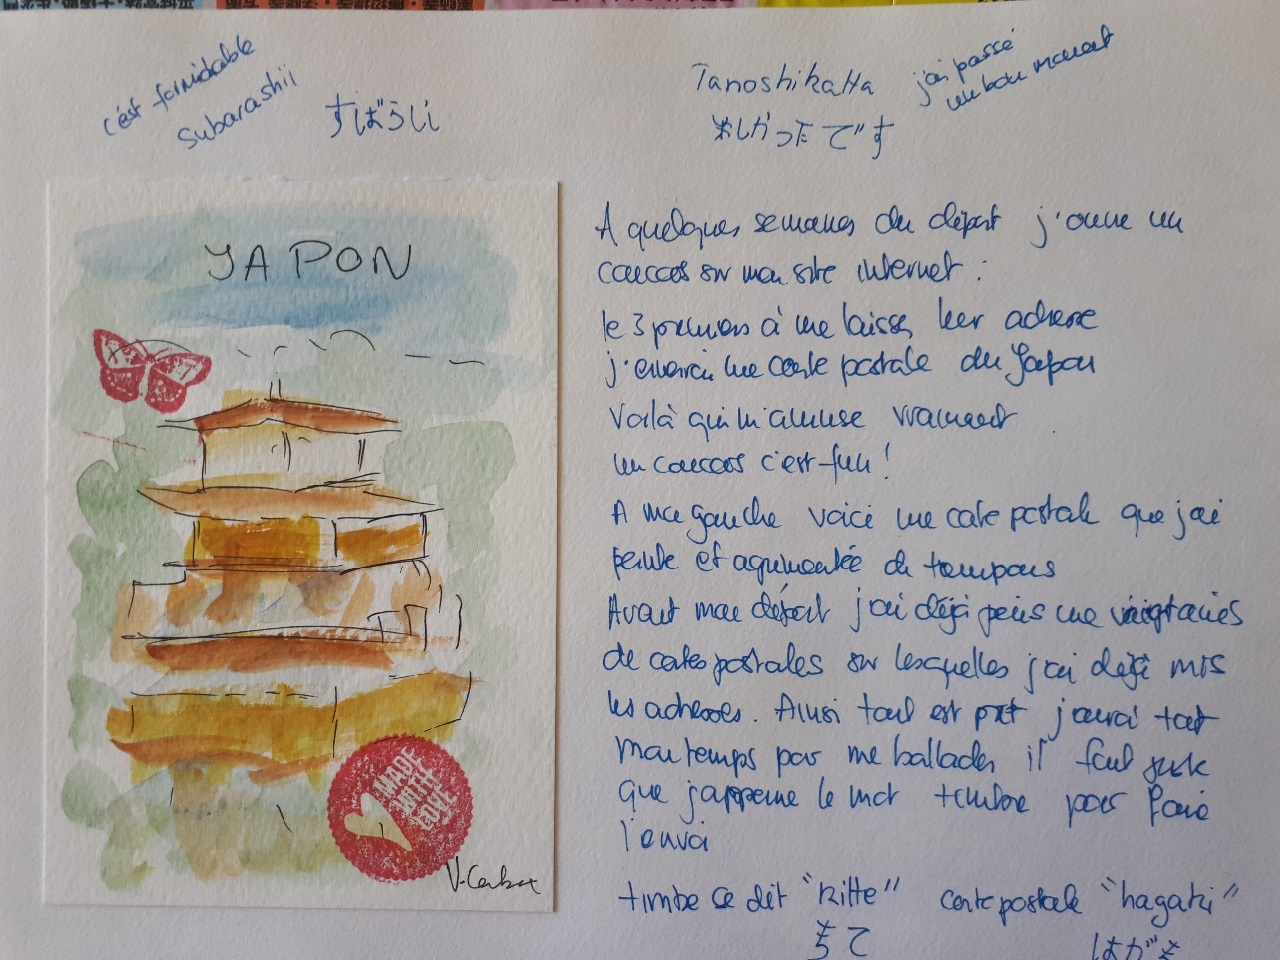 c'est formidable
Subarashii
すばらしい
Tanoshikatta
j'ai passé
un bon moment
しかったです
JAPON
MADE
WITH
LOVE
A quelques semaines du départ j'ouvre un
concours sur mon site internet :
le 3 premiers à me laisser leur adresse
j'enverrai une carte postale du Japon
Voilà qui m'amuse vraiment
un concours c'est fun !
A ma gauche voici une carte postale que j'ai
peinte et agrémentée de tampons
Avant mon départ j'ai déjà peins une vingtaines
de cartes postales sur lesquelles j'ai déjà mis
les adresses. Ainsi tout est prêt j'aurai tout
mon temps pour me ballader il faut juste
que j'apprenne le mot timbre pour faire
l'envoi
timbre ce dit "Kitte" carte postale "hagaki"
きて はがき